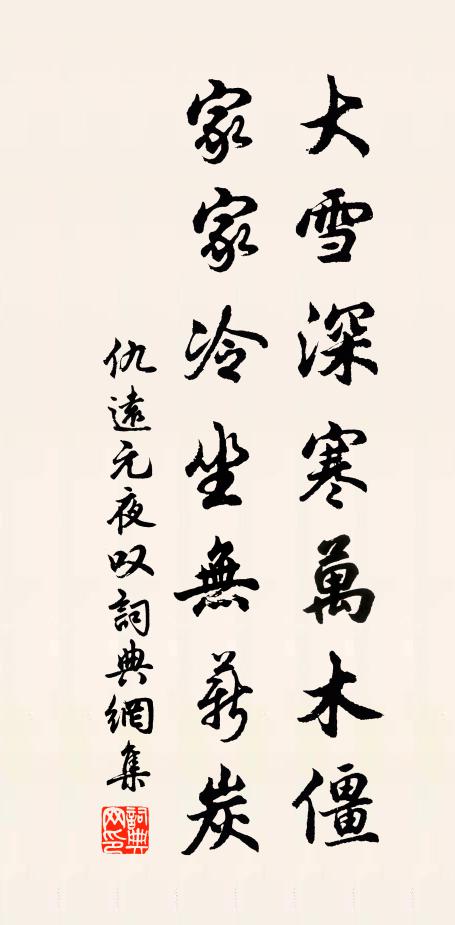 大雪深寒萬木僵
家家冷坐無薪炭
仇遠元夜叹詞典網集
詞典網印